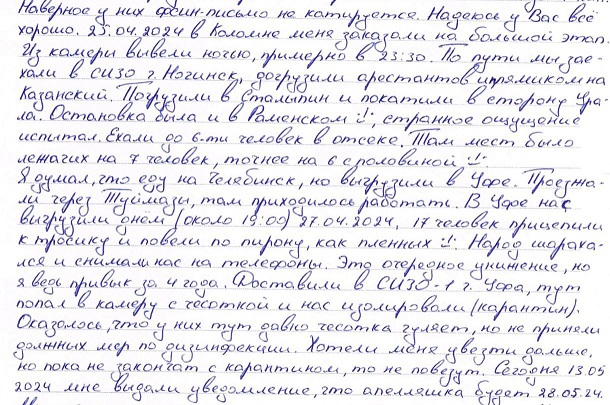 Наверное у них фсин-письмо не катируется. Надеюсь у Вас всё
хорошо. 25.04.2024 в Коломне меня заказали на большой этап.
Из камеры вывели ночью, примерно в 23:30. По пути мы зае-
хали в СИЗО г. Ногинск, догрузили арестантов и прямиком на
Казанский. Погрузили в Столыпин и покатили в сторону Ура-
ла. Остановка была и в Раменском :), странное ощущение
испытал. Ехали до 6-ти человек в отсеке. Там мест было
лежачих на 7 человек, точнее на 6 с половиной :).
Я думал, что еду на Челябинск, но выгрузили в Уфе. Проезжа-
ли через Туймазы, там приходилось работать. В Уфе нас
выгрузили днём (около 19:00) 27.04.2024, 17 человек прицепили
к тросику и повели по пирону, как пленных :). Народ шараха-
лся и снимали нас на телефоны. Это очередное унижение, но
я ведь привык за 4 года. Доставили в СИЗО-1 г. Уфа, тут
попал в камеру с чесоткой и нас изолировали (карантин).
Оказалось, что у них тут давно чесотка гуляет, но не приняли
должных мер по дизинфекции. Хотели меня увезти дальше,
но пока не закончат с карантином, то не повезут. Сегодня 13.05
2024 мне выдали уведомление, что апелляшка будет 28.05.24.